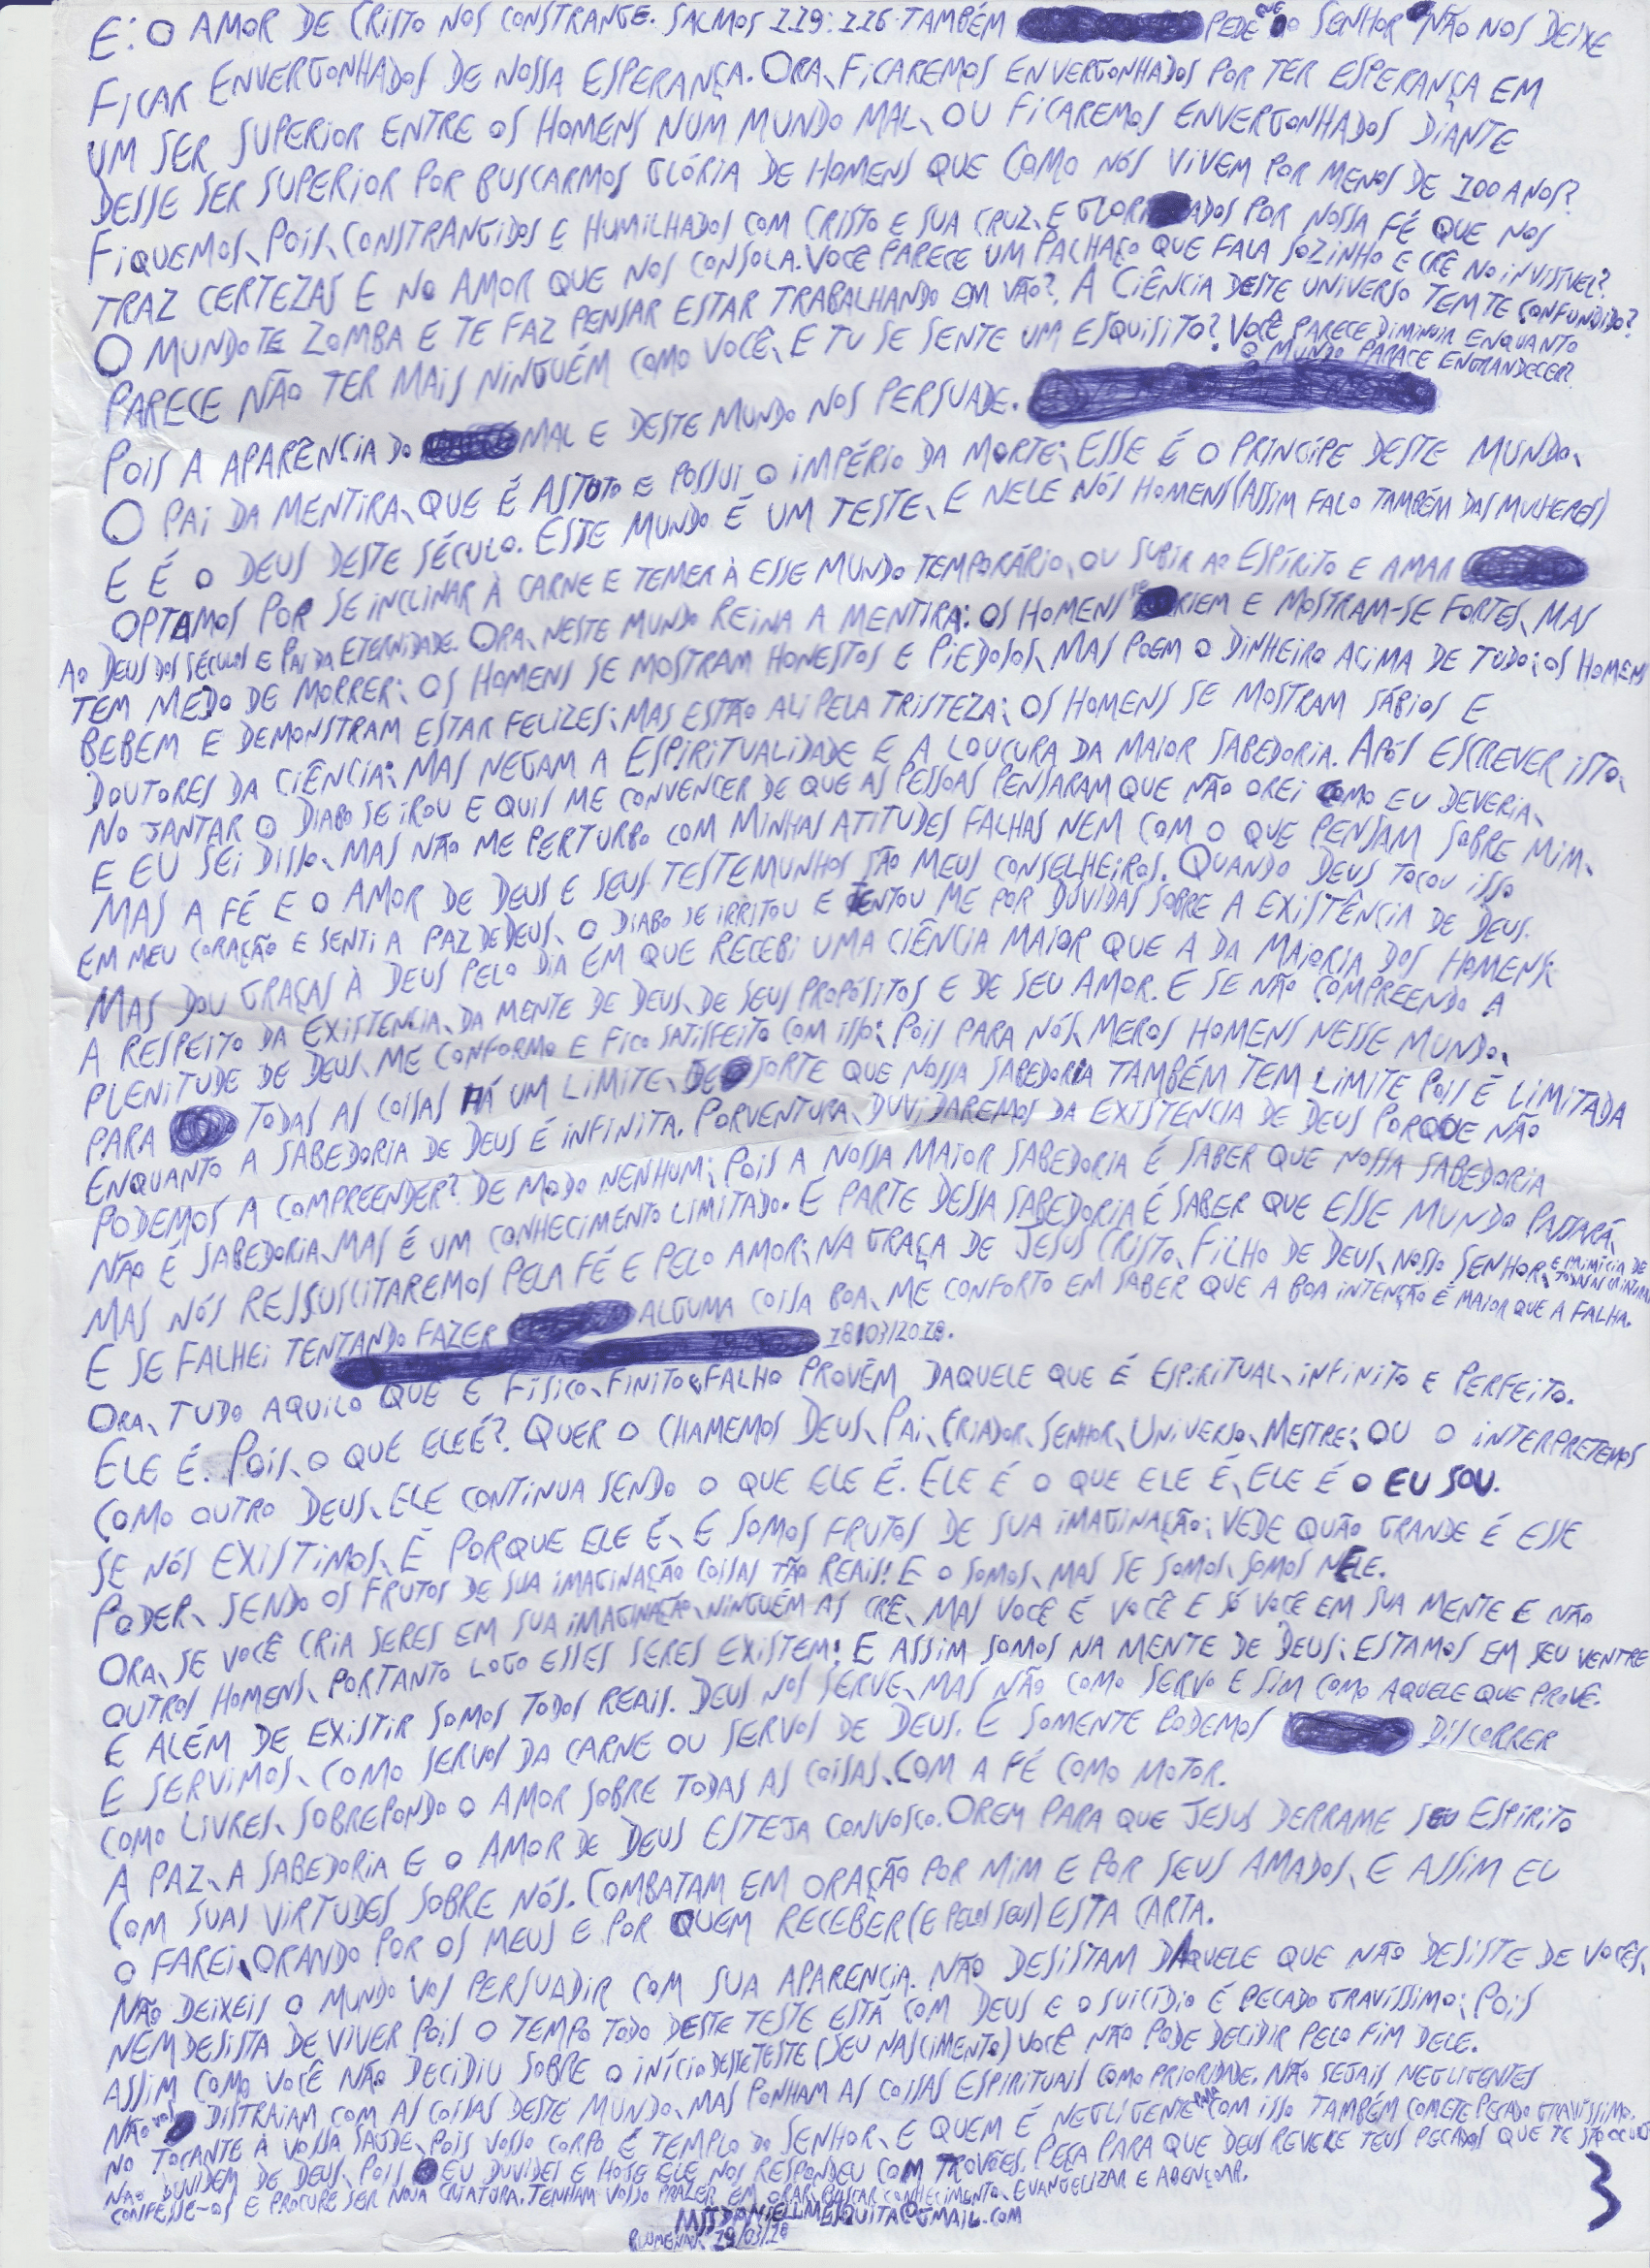 E: O AMOR DE CRISTO NOS CONSTRANGE. SALMOS 119:116. TAMBÉM PEDE QUE O SENHOR NÃO NOS DEIXE
FICAR ENVERGONHADOS DE NOSSA ESPERANÇA. ORA, FICAREMOS ENVERGONHADOS POR TER ESPERANÇA EM
UM SER SUPERIOR ENTRE OS HOMENS NUM MUNDO MAL, OU FICAREMOS ENVERGONHADOS DIANTE
DESSE SER SUPERIOR POR BUSCARMOS GLÓRIA DE HOMENS QUE COMO NÓS VIVEM POR MENOS DE 100 ANOS?
FIQUEMOS, POIS, CONSTRANGIDOS E HUMILHADOS COM CRISTO E SUA CRUZ, E GLORI ADOS POR NOSSA FÉ QUE NOS
TRAZ CERTEZAS E NO AMOR QUE NOS CONSOLA. VOCÊ PARECE UM PALHAÇO QUE FALA SOZINHO E CRÊ NO INVISÍVEL?
O MUNDO TE ZOMBA E TE FAZ PENSAR ESTAR TRABALHANDO EM VÃO? A CIÊNCIA DESTE UNIVERSO TEM TE CONFUNDIDO?
PARECE NÃO TER MAIS NINGUÉM COMO VOCÊ, E TU SE SENTE UM ESQUISITO? VOCÊ PARECE DIMINUIR ENQUANTO
O MUNDO PARECE ENGRANDECER?
POIS A APARÊNCIA DO MAL E DESTE MUNDO NOS PERSUADE.
O PAI DA MENTIRA, QUE É ASTUTO E POSSUI O IMPÉRIO DA MORTE; ESSE É O PRINCIPE DESTE MUNDO,
E É O DEUS DESTE SÉCULO. ESTE MUNDO É UM TESTE, E NELE NÓS HOMENS (ASSIM FALO TAMBÉM DAS MULHERES)
OPTAMOS POR SE INCLINAR À CARNE E TEMER À ESSE MUNDO TEMPORÁRIO, OU SUBIR AO ESPÍRITO E AMAR
AO DEUS DOS SÉCULOS E PAI DA ETERNIDADE. ORA, NESTE MUNDO REINA A MENTIRA: OS HOMENS RIEM E MOSTRAM-SE FORTES, MAS
TEM MEDO DE MORRER; OS HOMENS SE MOSTRAM HONESTOS E PIEDOSOS, MAS POEM O DINHEIRO ACIMA DE TUDO; OS HOMENS
BEBEM E DEMONSTRAM ESTAR FELIZES; MAS ESTÃO ALI PELA TRISTEZA; OS HOMENS SE MOSTRAM SÁBIOS E
DOUTORES DA CIÊNCIA; MAS NEGAM A ESPIRITUALIDADE E A LOUCURA DA MAIOR SABEDORIA. APÓS ESCREVER ISTO,
NO JANTAR O DIABO SE IROU E QUIS ME CONVENCER DE QUE AS PESSOAS PENSARAM QUE NÃO OREI COMO EU DEVERIA,
E EU SEI DISSO, MAS NÃO ME PERTURBO COM MINHAS ATITUDES FALHAS NEM COM O QUE PENSAM SOBRE MIM,
MAS A FÉ E O AMOR DE DEUS E SEUS TESTEMUNHOS SÃO MEUS CONSELHEIROS. QUANDO DEUS TOCOU ISSO
EM MEU CORAÇÃO E SENTI A PAZ DE DEUS, O DIABO SE IRRITOU E TENTOU ME POR DÚVIDAS SOBRE A EXISTÊNCIA DE DEUS.
MAS DOU GRAÇAS À DEUS PELO DIA EM QUE RECEBI UMA CIÊNCIA MAIOR QUE A DA MAIORIA DOS HOMENS
A RESPEITO DA EXISTENCIA, DA MENTE DE DEUS, DE SEUS PROPÓSITOS E DE SEU AMOR. E SE NÃO COMPREENDO A
PLENITUDE DE DEUS, ME CONFORMO E FICO SATISFEITO COM ISSO; POIS PARA NÓS, MEROS HOMENS NESSE MUNDO,
PARA TODAS AS COISAS HÁ UM LIMITE, DE SORTE QUE NOSSA SABEDORIA TAMBÉM TEM LIMITE POIS É LIMITADA
ENQUANTO A SABEDORIA DE DEUS É INFINITA. PORVENTURA, DUVIDAREMOS DA EXISTENCIA DE DEUS PORQUE NÃO
PODEMOS A COMPREENDER? DE MODO NENHUM; POIS A NOSSA MAIOR SABEDORIA É SABER QUE NOSSA SABEDORIA
NÃO É SABEDORIA, MAS É UM CONHECIMENTO LIMITADO. E PARTE DESSA SABEDORIA É SABER QUE ESSE MUNDO PASSARÁ,
MAS NÓS RESSUSCITAREMOS PELA FÉ E PELO AMOR; NA GRAÇA DE JESUS CRISTO, FILHO DE DEUS, NOSSO SENHOR, E PRIMÍCIA DE TODAS AS CRIATURAS
E SE FALHEI TENTANDO FAZER ALGUMA COISA BOA, ME CONFORTO EM SABER QUE A BOA INTENÇÃO É MAIOR QUE A FALHA.
18/03/2018.
ORA, TUDO AQUILO QUE É FÍSICO, FINITO E FALHO PROVÉM DAQUELE QUE É ESPIRITUAL, INFINITO E PERFEITO.
ELE É. POIS, O QUE ELE É? QUER O CHAMEMOS DEUS, PAI, CRIADOR, SENHOR, UNIVERSO, MESTRE; OU O INTERPRETEMOS
COMO OUTRO DEUS, ELE CONTINUA SENDO O QUE ELE É. ELE É O QUE ELE É, ELE É O EU SOU.
SE NÓS EXISTIMOS, É PORQUE ELE É, E SOMOS FRUTOS DE SUA IMAGINAÇÃO; VEDE QUÃO GRANDE É ESSE
PODER, SENDO OS FRUTOS DE SUA IMAGINAÇÃO COISAS TÃO REAIS! E O SOMOS, MAS SE SOMOS, SOMOS NELE.
ORA, SE VOCÊ CRIA SERES EM SUA IMAGINAÇÃO, NINGUÉM AS CRÊ, MAS VOCÊ É VOCÊ E SÓ VOCÊ EM SUA MENTE E NÃO
OUTROS HOMENS, PORTANTO LOGO ESSES SERES EXISTEM! E ASSIM SOMOS NA MENTE DE DEUS; ESTAMOS EM SEU VENTRE
E ALÉM DE EXISTIR SOMOS TODOS REAIS. DEUS NOS SERVE, MAS NÃO COMO SERVO E SIM COMO AQUELE QUE PROVÊ.
E SERVIMOS, COMO SERVOS DA CARNE OU SERVOS DE DEUS. E SOMENTE PODEMOS DISCORRER
COMO LIVRES, SOBREPONDO O AMOR SOBRE TODAS AS COISAS, COM A FÉ COMO MOTOR.
A PAZ, A SABEDORIA E O AMOR DE DEUS ESTEJA CONVOSCO. OREM PARA QUE JESUS DERRAME SEU ESPÍRITO
COM SUAS VIRTUDES SOBRE NÓS. COMBATAM EM ORAÇÃO POR MIM E POR SEUS AMADOS, E ASSIM EU
O FAREI, ORANDO POR OS MEUS E POR QUEM RECEBER (E PELOS SEUS) ESTA CARTA.
NÃO DEIXEIS O MUNDO VOS PERSUADIR COM SUA APARENCIA. NÃO DESISTAM DAQUELE QUE NÃO DESISTE DE VOCÊS,
NEM DESISTA DE VIVER POIS O TEMPO TODO DESTE TESTE ESTÁ COM DEUS E O SUICÍDIO É PECADO GRAVÍSSIMO; POIS
ASSIM COMO VOCÊ NÃO DECIDIU SOBRE O INÍCIO DESTE TESTE (SEU NASCIMENTO) VOCÊ NÃO PODE DECIDIR PELO FIM DELE.
NÃO VOS DISTRAIAM COM AS COISAS DESTE MUNDO, MAS PONHAM AS COISAS ESPIRITUAIS COMO PRIORIDADE. NÃO SEJAIS NEGLIGENTES
NO TOCANTE À VOSSA SAÚDE, POIS VOSSO CORPO É TEMPLO DO SENHOR, E QUEM É NEGLIGENTE PARA COM ISSO TAMBÉM COMETE PECADO GRAVÍSSIMO.
NÃO DUVIDEM DE DEUS, POIS EU DUVIDEI E HOJE ELE NOS RESPONDEU COM TROVÕES. PEÇA PARA QUE DEUS REVELE TEUS PECADOS QUE TE SÃO OCULTOS
CONFESSE-OS E PROCURE SER NOVA CRIATURA. TENHAM VOSSO PRAZER EM ORAR, BUSCAR CONHECIMENTO, EVANGELIZAR E ABENÇOAR.
MSTDANIELLMESQUITA@GMAIL.COM
BLUMENAU 19/03/18
3